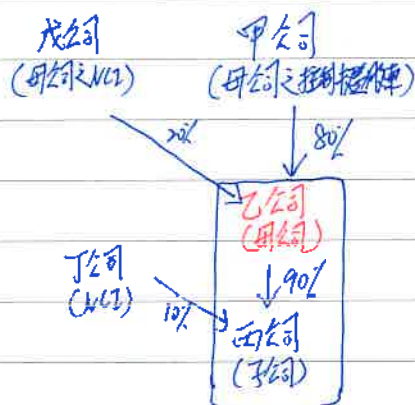 戊公司
(母公司之NCI)
甲公司
(母公司之控制權益股東)
20%
80%
乙公司
(母公司)
丁公司
(NCI)
10%
90%
丙公司
(子公司)